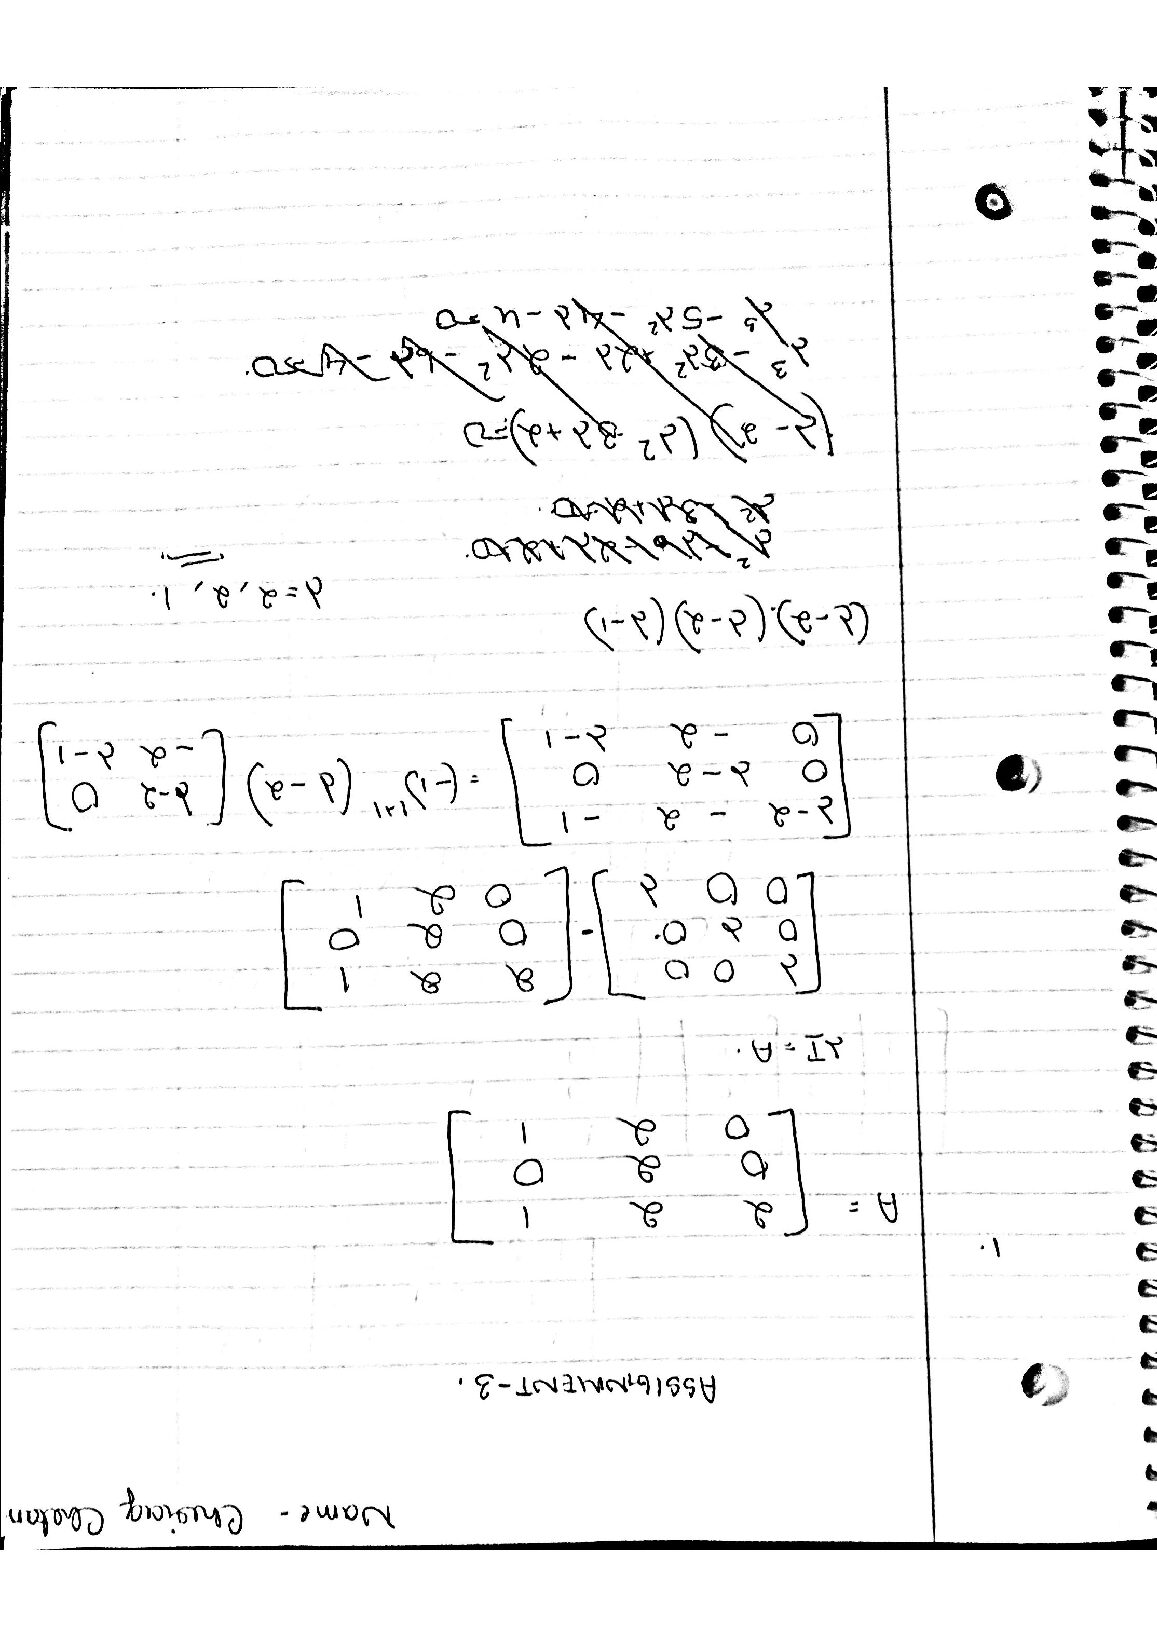 Name - Chirag Chetan
ASSIGNMENT-3.
1.
A = [ 2 2 1
0 2 0
0 2 1 ]
λI - A.
[ λ 0 0
0 λ 0.
0 0 λ ] - [ 2 2 1
0 2 0
0 2 1 ]
[ λ-2 -2 -1
0 λ-2 0
0 -2 λ-1 ] = (-1)¹⁺¹ (λ-2) [ λ-2 0
-2 λ-1 ]
(λ-2).(λ-2)(λ-1)
λ=2, 2, 1.
λ² -3λ+2=0.
(λ-2) (λ² -3λ+2)=0
λ³ -3λ² +2λ -2λ² -6λ -4=0.
λ³ -5λ² -4λ -4=0